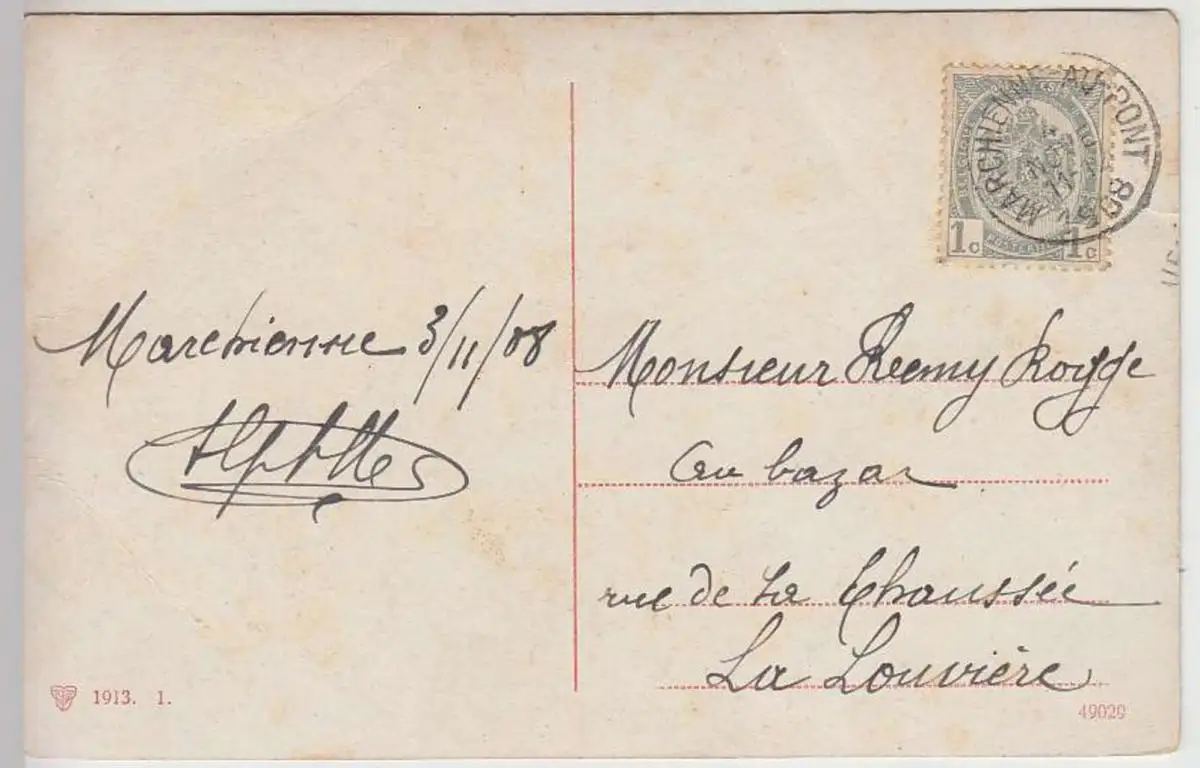 MARCHIENNE-AU-PONT
1c 1c
Marchienne 3/11/08
Monsieur Remy
au bazar
rue de la Chaussée
La Louvière
1913. 1.
49029